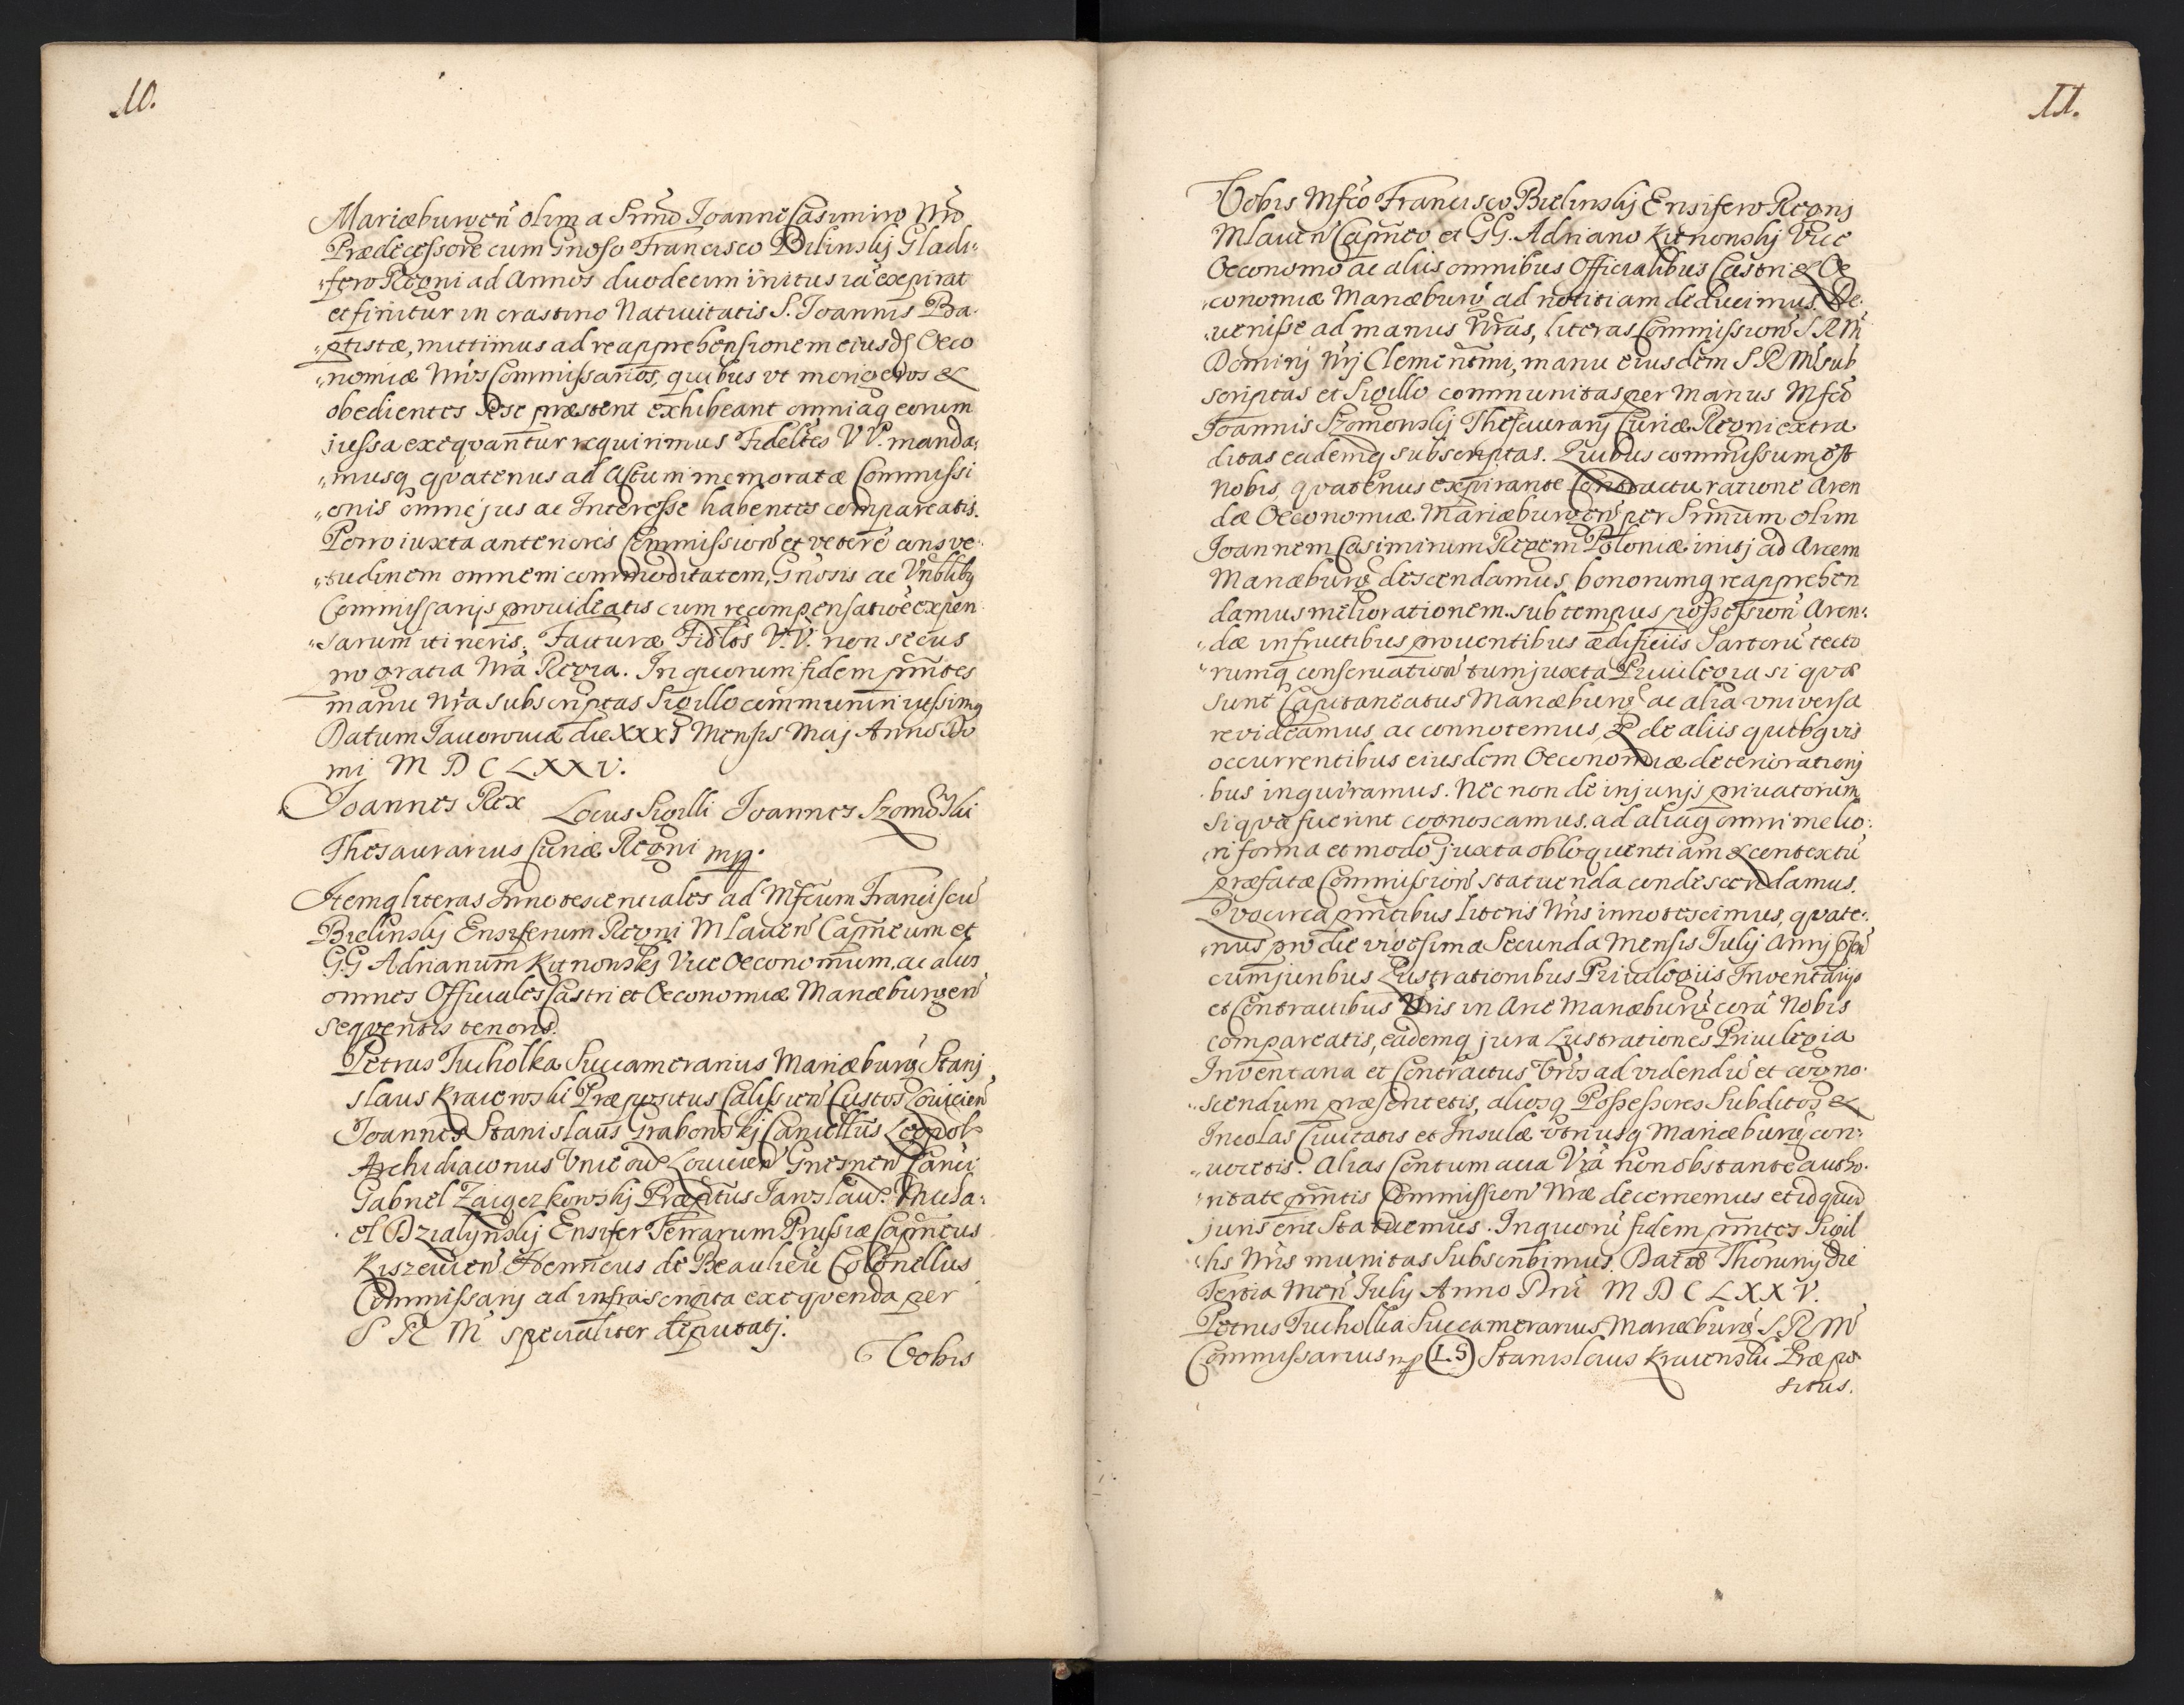 10.
Mariæburgen̄ olim a Srm̄o Joanne Casimiro Nr̄o
Prædecessore cum Gnoso Francisco Bilinskij Gladi„
„fero Regni ad Annos duodecim initus iā expirat
et finitur in crastino Natiuitatis S. Joannis Ba„
„ptistæ, mittimus ad reapprehensionem eiusdē Oeco
„nomiæ Nr̄os Commissarios, quibus vt morigeros &
obedientes sese præstent exhibeant omniaq eorum
jussa exeqvantur requirimus Fideltēs VV. manda„
„musq qvatenus ad Actum memoratæ Commissi
„onis omne jus ac Interesse habentes compareatis.
Porro iuxta anterioris Commission̄ et veterē consve„
„tudinem omnem commoditatem, Gnosis ac Vnblibq
Commissarijs prouideatis cum recompensatiōe expen
„sarum itineris. Facturæ Fidltōs V.V. non secus
pro gratia Nr̄a Regia. In quorum fidem pn̄tes
manu Nr̄a subscriptas Sigillo communiri iussimq
Datum Jauorouiæ die XXXI Mensis Maij Anno Do
mi M D C LXXV.
Joannes Rex Locus Sigilli Joannes Szomoski
Thesaurarius Curiæ Regni mp.
Itemq literas Innotescentiales ad Mfcum Franciscū
Bielinskij Ensiferum Regni Mlauen̄ Capn̄eum et
GG Adrianum Kitnowskij Vice Oeconomum, ac alios
omnes Officiales Castri et Oeconomiæ Mariæburgen̄
seqventis tenoris.
Petrus Tucholka Succamerarius Mariæburg̃ Stanj
slaus Kraiewski Præpositus Calissien̄ Custos Louicien̄
Joannes Stanislaus Grabowskij Cancellus Leopol
Archidiaconus Vnieou Louicien̄ Gnesnen̄ Canci
Gabriel Zaigczkowskij Præptus Jaroslau. Micha„
el Dzialynskij Ensifer Terrarum Prussiæ Capn̄eus
Kiszewien̄ Henricus de Beaulieu Colonellus
Commissarij ad infrascripta exeqvenda per
S R M specialiter deputatj.
Vobis
11.
Vobis Mfco Francisco Bielinskij Ensifero Regnj
Mlauen̄ Capn̄eo et GG. Adriano Kitnowskij Vice
Oeconomo ac aliis omnibus Officialibus Castri & Oe
„conomiæ Mariæburg̃ ad notitiam deducimus. De„
„uenisse ad manus Nr̄as, literas Commission̄ S R M
Dominj Nr̄j Clementmi, manu eiusdem S R M sub
scriptas et Sigillo communitas per manus Mfci
Joannis Szomowskij Thesaurarij Curiæ Regni extra
ditas eademq subscriptas. Quibus commissum est
Nobis, qvatenus expirante Contractu ratione Aren
dæ Oeconomiæ Mariæburgen̄ per Srm̄um olim
Joannem Casimirum Regem Poloniæ initj ad Arcem
Mariæburg̃ descendamus, bonorumq reapprehen
damus meliorationem sub tempus possession̄ Aren„
„dæ in fructibus prouentibus ædificiis Sartorū tecto
„rumq conseruation̄ tum juxta Priuilegia si qvæ
sunt Capitaneatus Mariæburg̃ ac alia vniversa
revideamus, ac connotemus, & de aliis quibqvis
occurrentibus eiusdem Oeconomiæ deterioratjonj
bus inquiramus. Nec non de injurijs priuatorum
si qvæ fuerint cognoscamus, ad aliaq omni melio„
„ri forma et modo juxta obloquentiam & contextū
præfatæ Commission̄ statuenda condescendamus.
Qvocirca pn̄tibus literis Nr̄is innotescimus, qvate„
„nus pro die vigesima Secunda Mensis Julij Annj
cum juribus Lustrationibus Priuilegiis Inventarijs
et Contractibus Vr̄is in Arce Mariæburg̃ corā Nobis
compareatis, eademq jura Lustrationes Priuilegia
Inventaria et Contractus Vr̄os ad videndū et cogno„
„scendum præsentetis, aliosq Possessores Subditos &
Incolas Ciuitatis et Insulæ vtriusq Mariæburg̃ con„
„uocetis. Alias Contumacia Vr̄a non obstante autho„
„ritate pn̄tis Commission̄ Nr̄æ decernemus et id quid
juris erit Statuemus. In quorū fidem pn̄tes Sigil
„lis Nr̄is munitas Subscribimus. Datæ Thorunij die
Tertia Men̄ Julij Anno Dn̄i M D C LXXV.
Petrus Tucholka Succamerarius Mariæburg̃ S.R M
Commissarius mp (L.S) Stanislaus Kraiewski Præpo
situs.